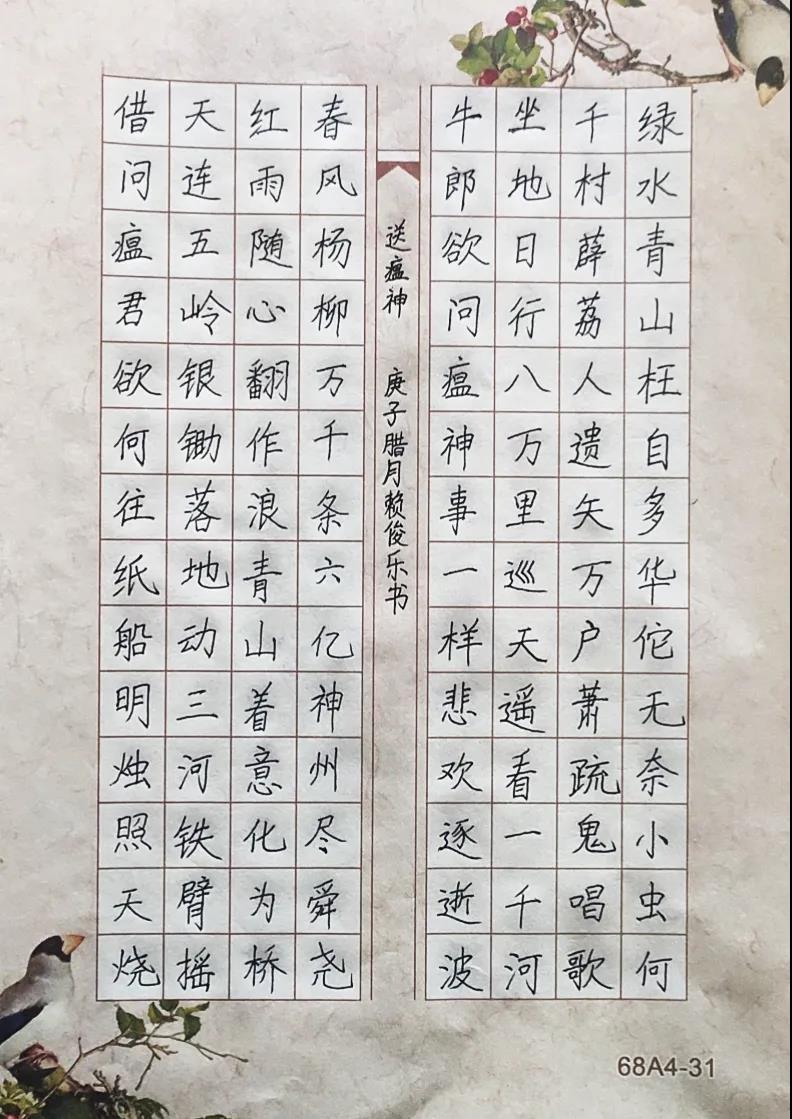 绿水青山枉自多华佗无奈小虫何
千村薜荔人遗矢万户萧疏鬼唱歌
坐地日行八万里巡天遥看一千河
牛郎欲问瘟神事一样悲欢逐逝波
送瘟神 庚子腊月赖俊乐书
春风杨柳万千条六亿神州尽舜尧
红雨随心翻作浪青山着意化为桥
天连五岭银锄落地动三河铁臂摇
借问瘟君欲何往纸船明烛照天烧
68A4-31